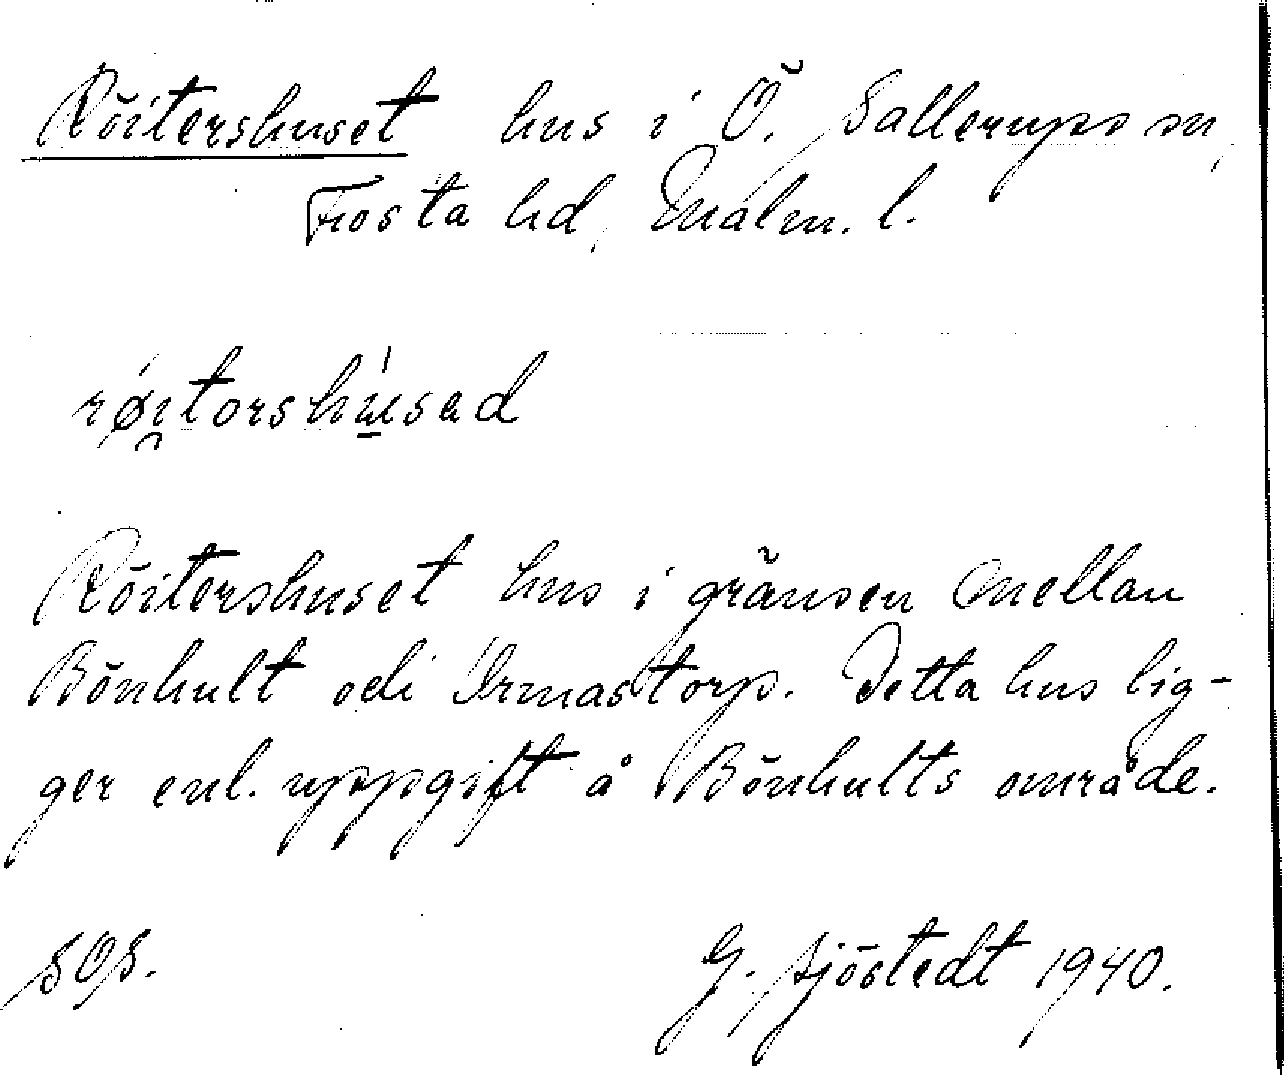 Röitershuset hus i Ö. Sallerups sn,
Frosta hd, Malm. l.
Röitershuset hus i gränsen mellan
Bönhult och Ormastorp. Detta hus lig-
ger enl. uppgift å Bönhults område.
SOS. G. Sjöstedt 1940.